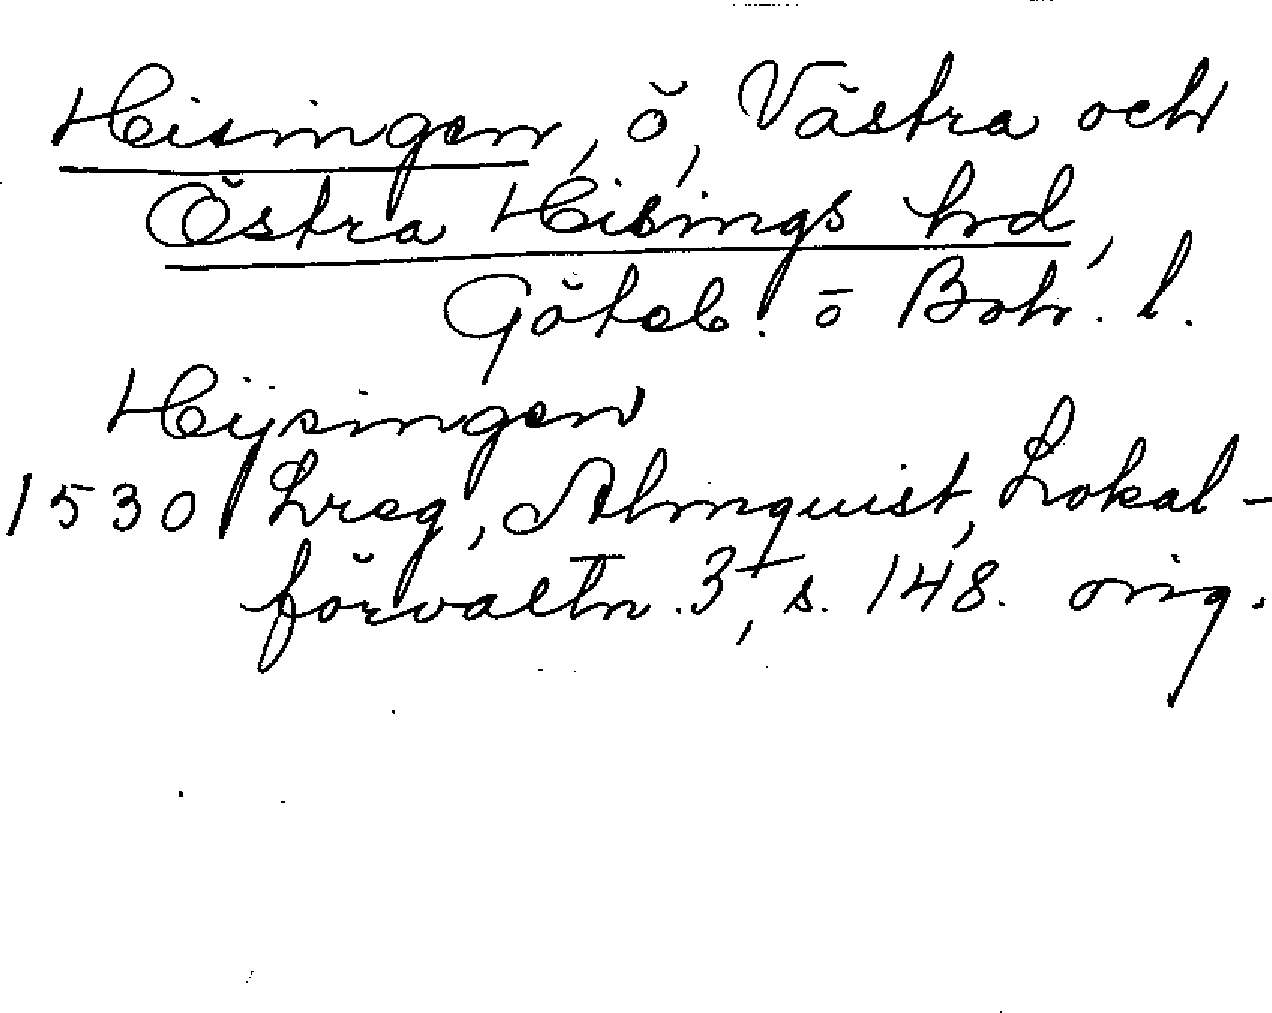 Hisingen, ö, Västra och
Östra Hisings hrd,
Göteb. o Boh. l.
Hijsingen
1530 Lreg, Almquist, Lokal-
förvaltn. 3, s. 148. orig.